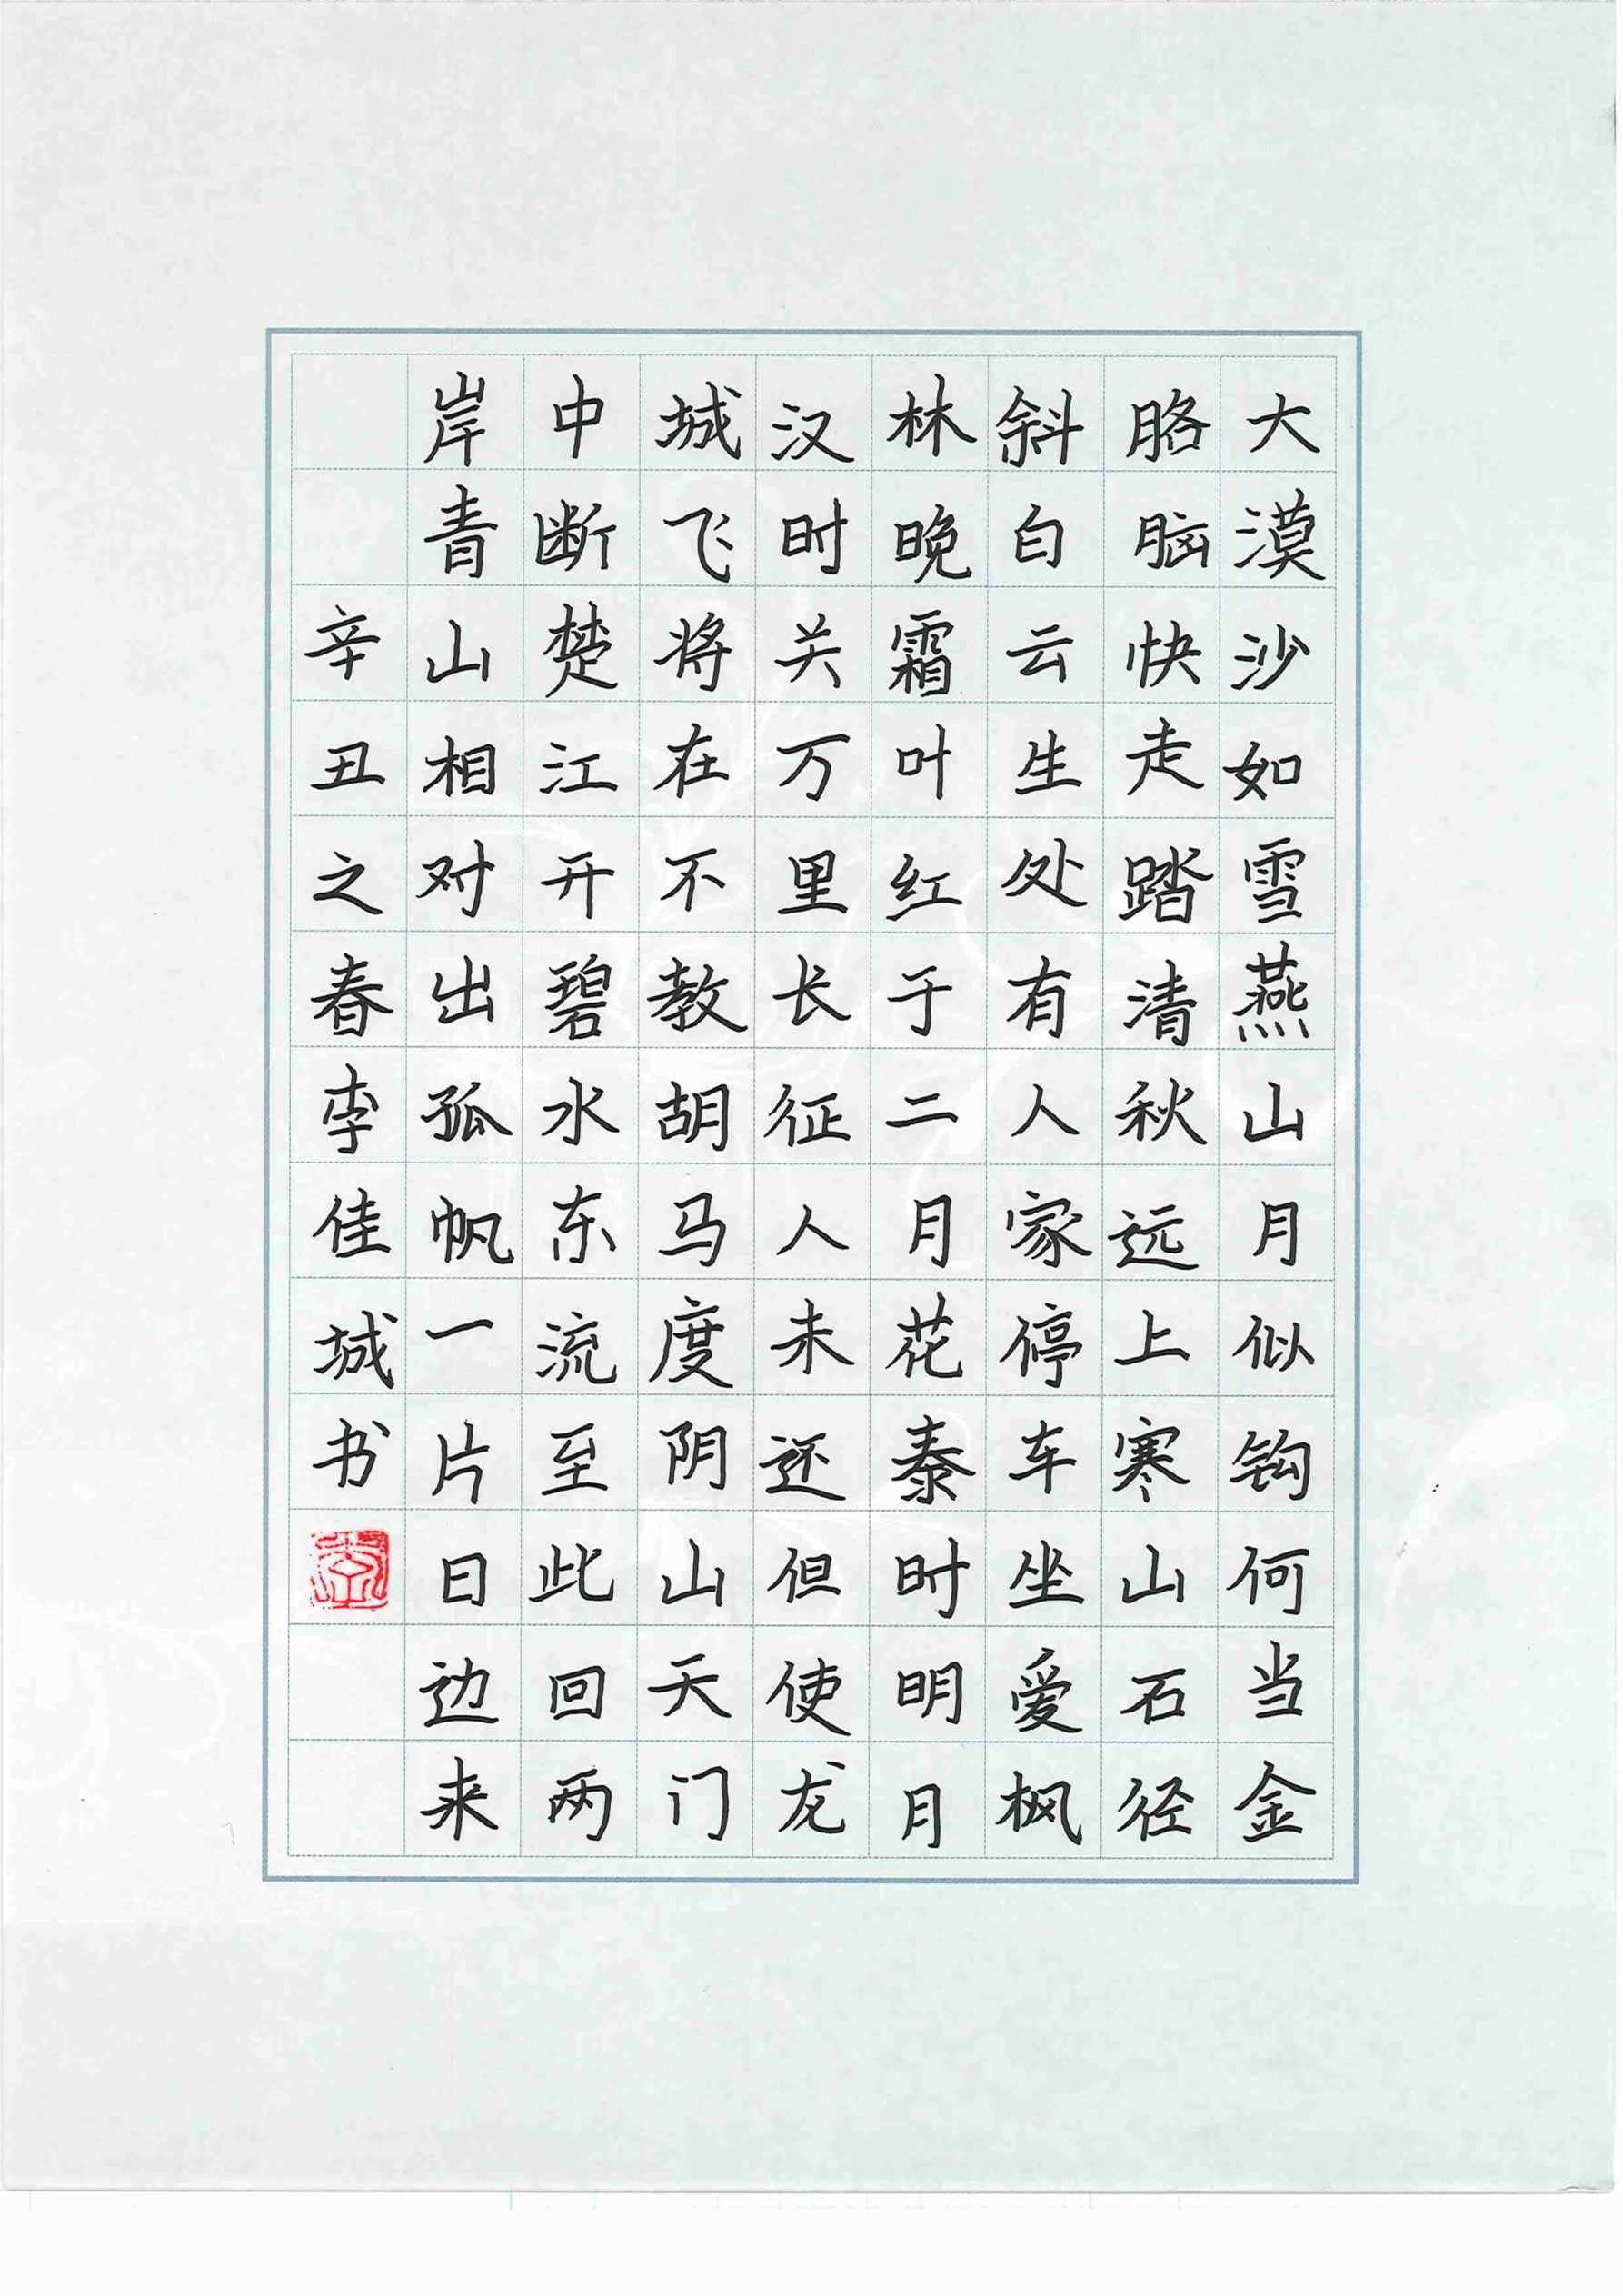 大漠沙如雪燕山月似钩何当金
胳脑快走踏清秋远上寒山石径
斜白云生处有人家停车坐爱枫
林晚霜叶红于二月花泰时明月
汉时关万里长征人未还但使龙
城飞将在不教胡马度阴山天门
中断楚江开碧水东流至此回两
岸青山相对出孤帆一片日边来
辛丑之春李佳城书